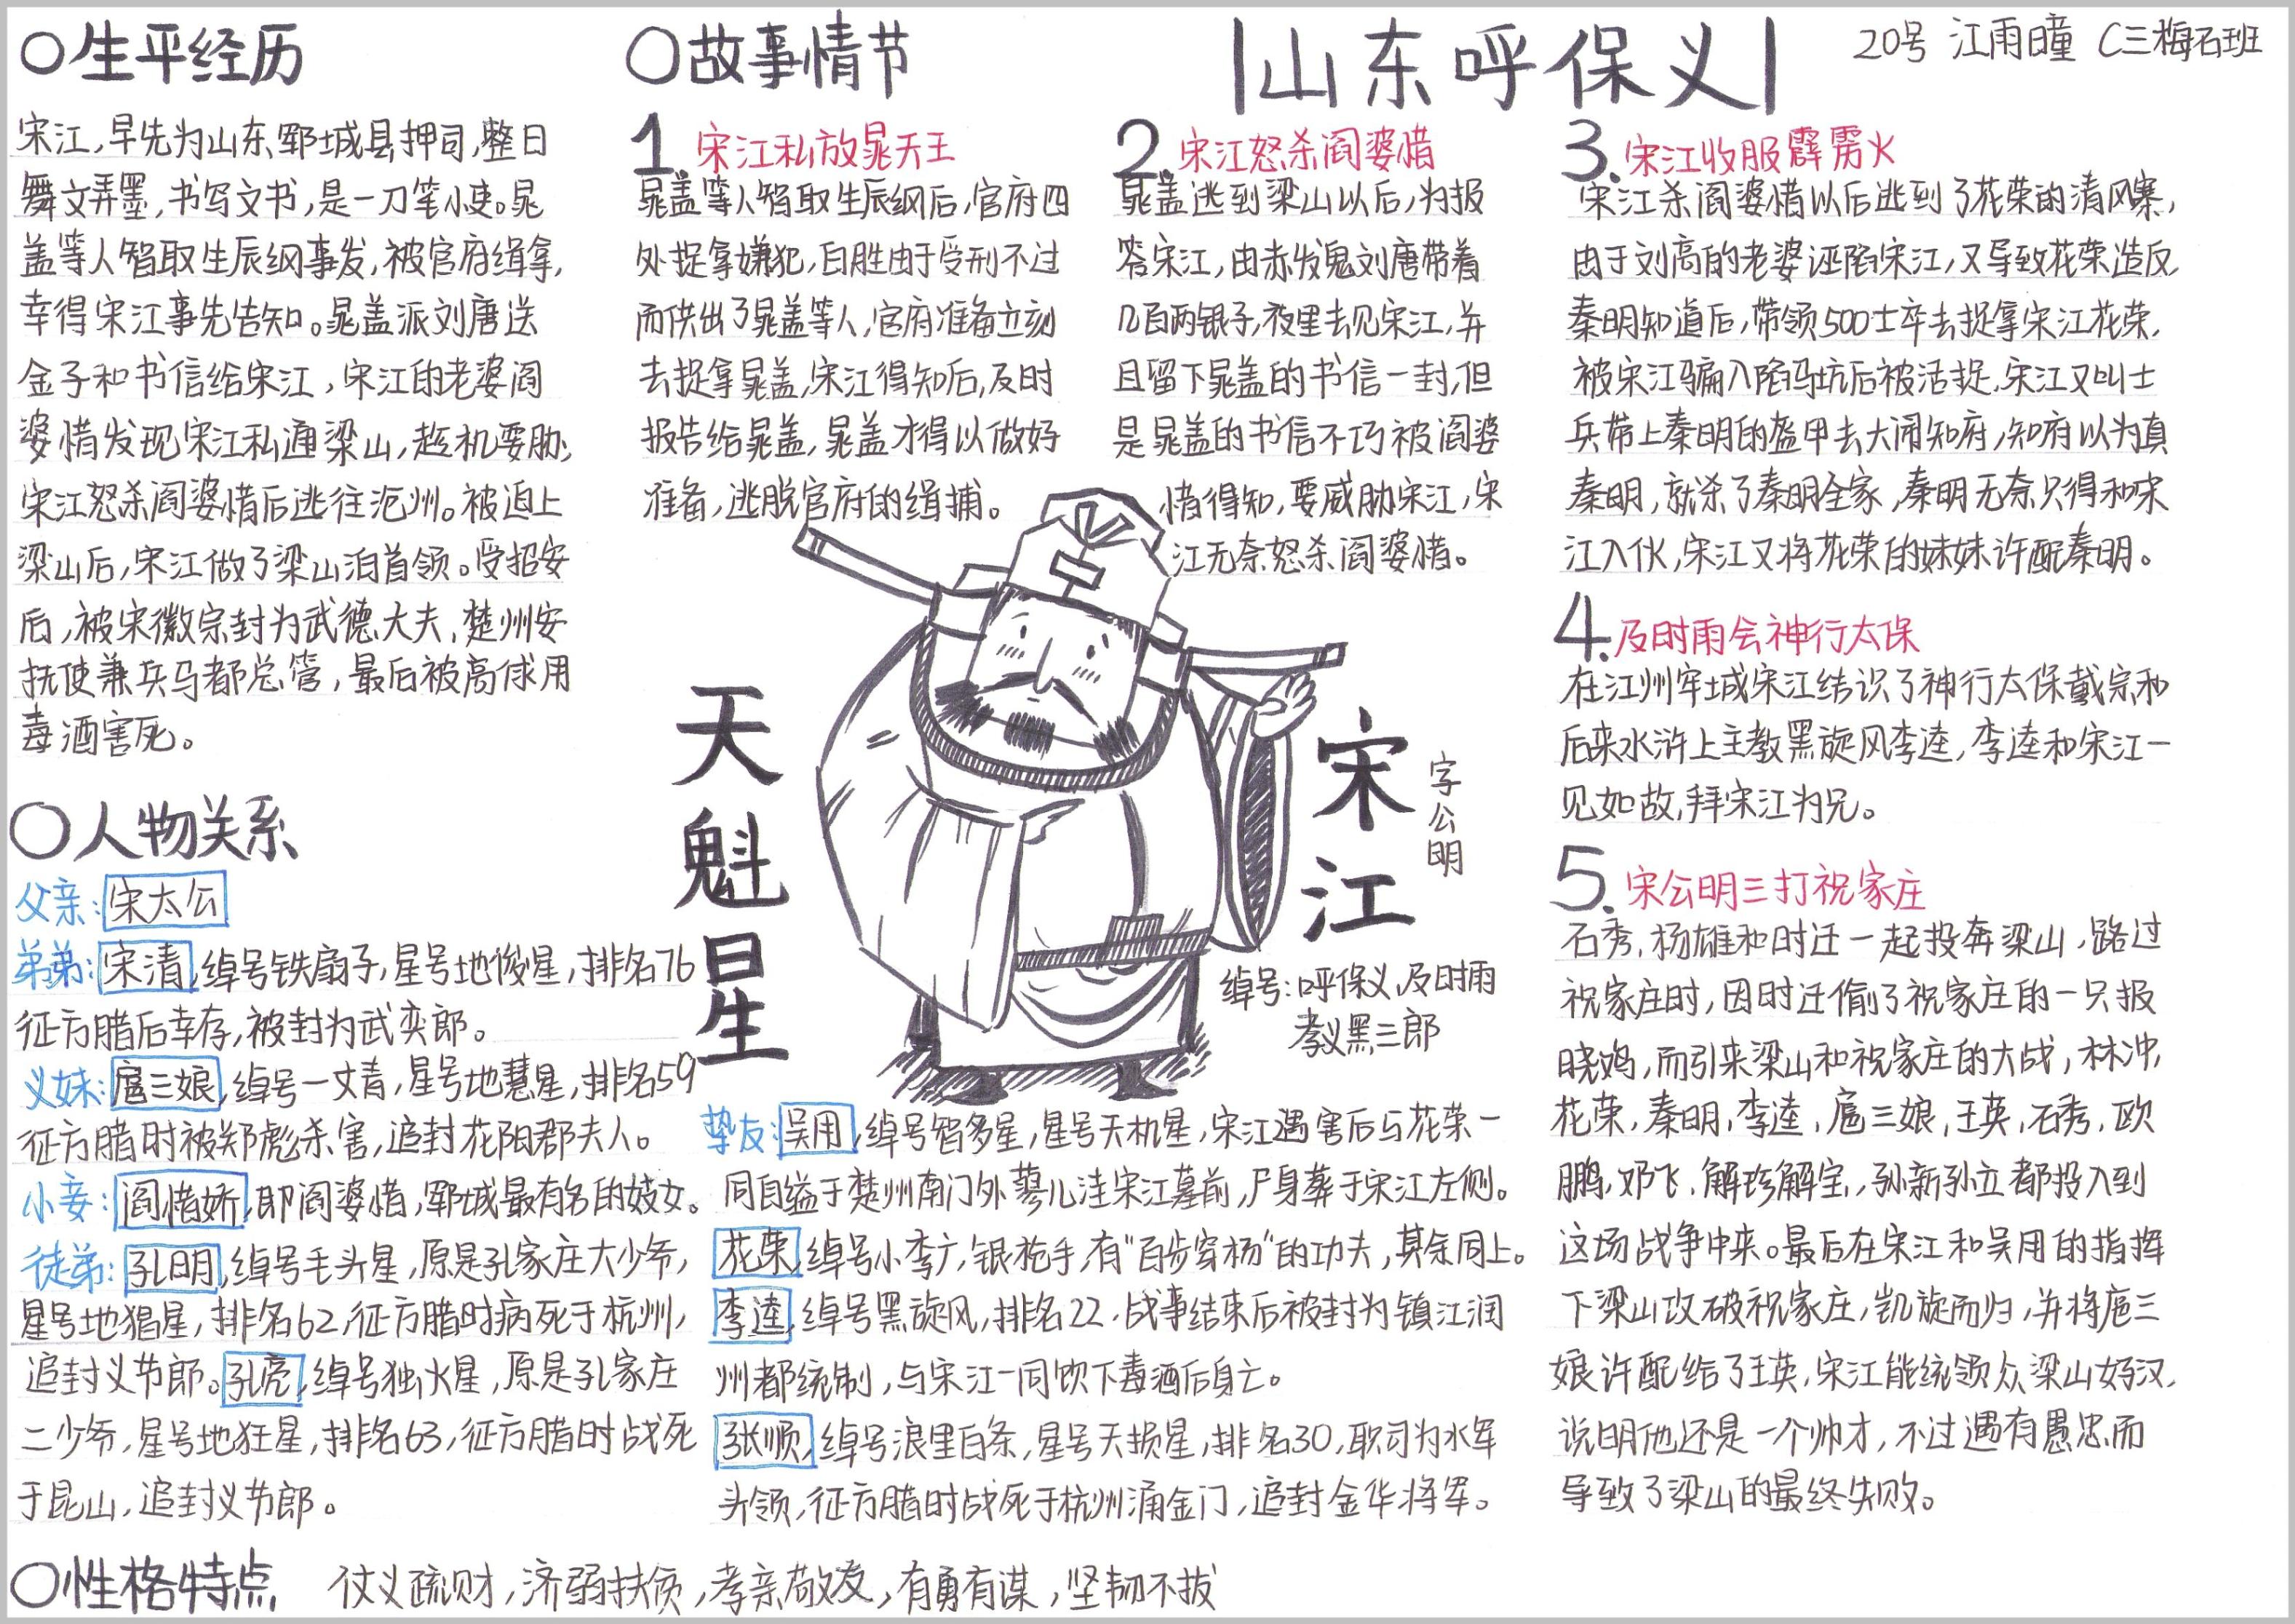 山东呼保义
20号 江雨曈 C三梅石班
○生平经历
宋江,早先为山东郓城县押司,整日
舞文弄墨,书写文书,是一刀笔小吏。晁
盖等人智取生辰纲事发,被官府缉拿,
幸得宋江事先告知。晁盖派刘唐送
金子和书信给宋江,宋江的老婆阎
婆惜发现宋江私通梁山,趁机要胁,
宋江怒杀阎婆惜后逃往沧州。被迫上
梁山后,宋江做了梁山泊首领。受招安
后,被宋徽宗封为武德大夫,楚州安
抚使兼兵马都总管,最后被高俅用
毒酒害死。
○人物关系
父亲:宋太公
弟弟:宋清,绰号铁扇子,星号地俊星,排名76
征方腊后幸存,被封为武奕郎。
义妹:扈三娘,绰号一丈青,星号地慧星,排名59
征方腊时被郑彪杀害,追封花阳郡夫人。
小妾:阎惜娇,即阎婆惜,郓城最有名的妓女。
徒弟:孔明,绰号毛头星,原是孔家庄大少爷,
星号地猖星,排名62,征方腊时病死于杭州,
追封义节郎。孔亮,绰号独火星,原是孔家庄
二少爷,星号地狂星,排名63,征方腊时战死
于昆山,追封义节郎。
○故事情节
1.宋江私放晁天王
晁盖等人智取生辰纲后,官府四
处捉拿嫌犯,白胜由于受刑不过
而供出了晁盖等人,官府准备立刻
去捉拿晁盖,宋江得知后,及时
报告给晁盖,晁盖才得以做好
准备,逃脱官府的缉捕。
2.宋江怒杀阎婆惜
晁盖逃到梁山以后,为报
答宋江,由赤发鬼刘唐带着
几百两银子,夜里去见宋江,并
且留下晁盖的书信一封,但
是晁盖的书信不巧被阎婆
惜得知,要威胁宋江,宋
江无奈怒杀阎婆惜。
天魁星
宋江
字公明
绰号:呼保义,及时雨
孝义黑三郎
挚友:吴用,绰号智多星,星号天机星,宋江遇害后与花荣一
同自缢于楚州南门外蓼儿洼宋江墓前,尸身葬于宋江左侧。
花荣,绰号小李广,银枪手,有"百步穿杨"的功夫,其余同上。
李逵,绰号黑旋风,排名22,战事结束后被封为镇江润
州都统制,与宋江一同饮下毒酒后身亡。
张顺,绰号浪里白条,星号天损星,排名30,职司为水军
头领,征方腊时战死于杭州涌金门,追封金华将军。
3.宋江收服霹雳火
宋江杀阎婆惜以后逃到了花荣的清风寨,
由于刘高的老婆诬陷宋江,又导致花荣造反,
秦明知道后,带领500士卒去捉拿宋江花荣,
被宋江骗入陷马坑后被活捉,宋江又叫士
兵带上秦明的盔甲去大闹知府,知府以为真
秦明,就杀了秦明全家,秦明无奈只得和宋
江入伙,宋江又将花荣的妹妹许配秦明。
4.及时雨会神行太保
在江州牢城宋江结识了神行太保戴宗和
后来水浒上主教黑旋风李逵,李逵和宋江一
见如故,拜宋江为兄。
5.宋公明三打祝家庄
石秀,杨雄和时迁一起投奔梁山,路过
祝家庄时,因时迁偷了祝家庄的一只报
晓鸡,而引来梁山和祝家庄的大战,林冲,
花荣,秦明,李逵,扈三娘,王英,石秀,欧
鹏,邓飞,解珍解宝,孙新孙立都投入到
这场战争中来。最后在宋江和吴用的指挥
下梁山攻破祝家庄,凯旋而归,并将扈三
娘许配给了王英,宋江能统领众梁山好汉,
说明他还是一个帅才,不过遇有愚忠而
导致了梁山的最终失败。
○性格特点 仗义疏财,济弱扶贫,孝亲敬友,有勇有谋,坚韧不拔